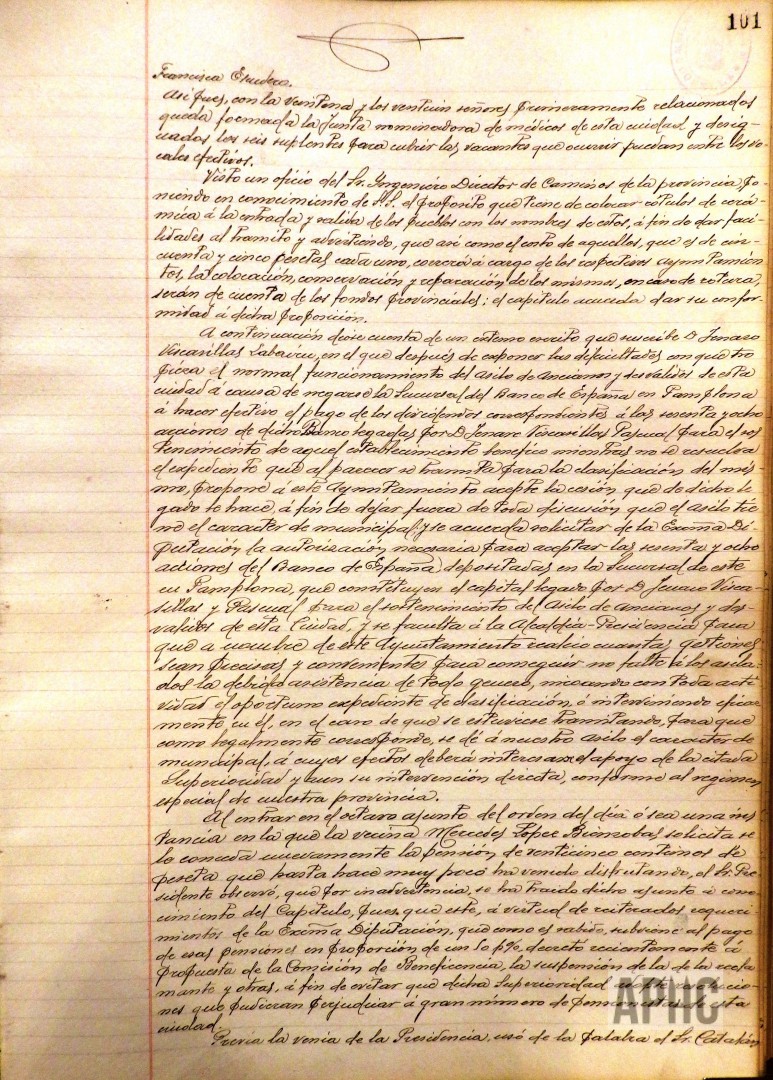 101
Francisca Escudero.
Así pues, con la veintena y los ventiun señores primeramente relacionados
queda formada la Junta nominadora de médicos de esta ciudad y desig-
nados los seis suplentes para cubrir las vacantes que ocurrir puedan entre los vo-
cales efectivos.
Visto un oficio del Sr. Yngeniero Director de Caminos de la provincia, po-
niendo en conocimiento de S.S. el proposito que tiene de colocar rótulos de cerá-
mica á la entrada y salida de los pueblos con los nombres de estos, á fin de dar faci-
lidades al transito y advirtiendo, que asi como el costo de aquellos, que es de cin-
cuenta y cinco pesetas cada uno, correrá á cargo de los respectivos Ayuntamien-
tos, la colocación, conservación y reparación de los mismos, en caso de rotura,
serán de cuenta de los fondos provinciales; el capitulo acuerda dar su confor-
midad á dicha proposición.
A continuación diose cuenta de un extenso escrito que suscribe D. Jenaro
Viscasillas Labairu, en el que después de exponer las dificultades con que tro
pieza el normal funcionamiento del Asilo de Ancianos y desvalidos de esta
ciudad á causa de negarse la Sucursal del Banco de España en Pamplona
á hacer efectivo el pago de los dividendos correspondientes á las sesenta y ocho
acciones de dicho Banco legadas por D. Jenaro Viscasillas Pascual para el sos
tenimiento de aquel establecimiento benefico mientras no se resuelva
el expediente que al parecer se tramita para la clasificación del mis-
mo, propone á este Ayuntamiento acepte la cesión, que de dicho le
gado le hace, á fin de dejar fuera de toda discusión que el asilo tie
ne el caracter de municipal; y se acuerda solicitar de la Excma Di-
putación la autorización necesaria para aceptar las sesenta y ocho
acciones del Banco de España, depositadas en la Sucursal de este
en Pamplona, que constituyen el capital legado por D. Jenaro Visca-
sillas y Pascual para el sostenimiento del Asilo de Ancianos y des-
validos de esta Ciudad, y se faculta á la Alcaldía-Presidencia para
que a nombre de este Ayuntamiento realice cuantas gestiones
sean precisas y convenientes para conseguir no falte á los asila-
dos la debida asistencia de todo genero, incoando con toda acti
vidad el oportuno expediente de clasificación, ó interviniendo eficaz
mente en él, en el caso de que se estuviese tramitando, para que
como legalmente corresponde, se dé á nuestro asilo el caracter de
municipal, á cuyos efectos deberá interesarse el apoyo de la citada
Superioridad y aun su intervención directa, conforme al regimen
especial de nuestra provincia.
Al entrar en el octavo asunto del orden del dia ó sea una ins
tancia en la que la vecina Mercedes López Bionzobas solicita se
le conceda nuevamente la pensión de venticinco centimos de
peseta que hasta hace muy poco ha venido disfrutando, el Sr. Pre-
sidente observó, que por inadvertencia, se ha traido dicho asunto á cono-
cimiento del Capitulo, pues que este, á virtud de reiterados requeri-
mientos de la Excma Diputación, que como es sabido, subviene al pago
de esas pensiones en proporción de un 50 p%, decretó recientemente á
propuesta de la Comisión de Beneficencia, la suspensión de la de la recla
mante y otras, á fin de evitar que dicha Superioridad
nes que pudieran perjudicar á gran número de pensionistas de esta
ciudad.
Previa la venia de la Presidencia, usó de la palabra el Sr. Catalán
APHC